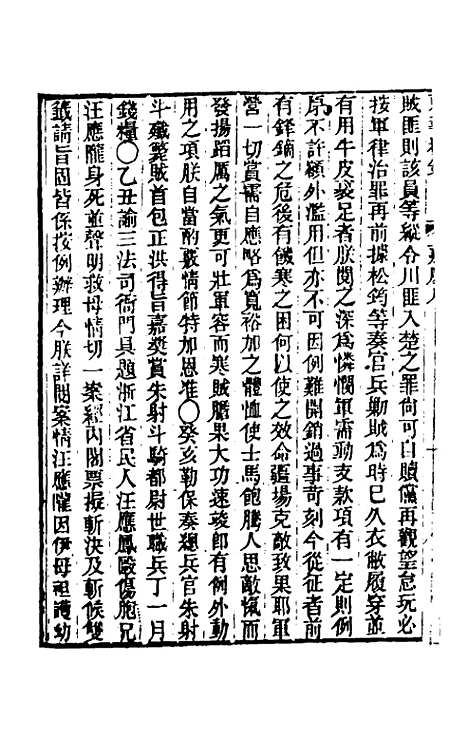 賊匪則該員等縱令川匪入楚之罪尚可自贖儻再觀望怠玩必
按軍律治罪再前據松筠等奏官兵勦賊爲時已久衣敝履穿並
有用牛皮裹足者朕閱之深爲憐憫軍需動支款項有一定則例
原不許額外濫用但亦不可因例難開銷過事苛刻今從征者前
有鋒鏑之危後有饑寒之困何以使之效命疆場克敵致果耶軍
營一切賞需自應略爲寬裕加之體恤使士馬飽騰人思敵愾而
發揚蹈厲之氣更可壯軍容而寒賊膽果大功速竣卽有例外動
用之項朕自當酌覈情節特加恩准〇癸亥勒保奏總兵官朱射
斗殲斃賊首包正洪得旨嘉獎賞朱射斗騎都尉世職兵丁一月
錢糧〇乙丑諭三法司衙門具題浙江省民人汪應鳳毆傷胞兄
汪應隴身死並聲明救母情切一案經內閣票擬斬決及斬候雙
籤請旨固皆係按例辦理今朕詳閱案情汪應隴因伊母祖護幼